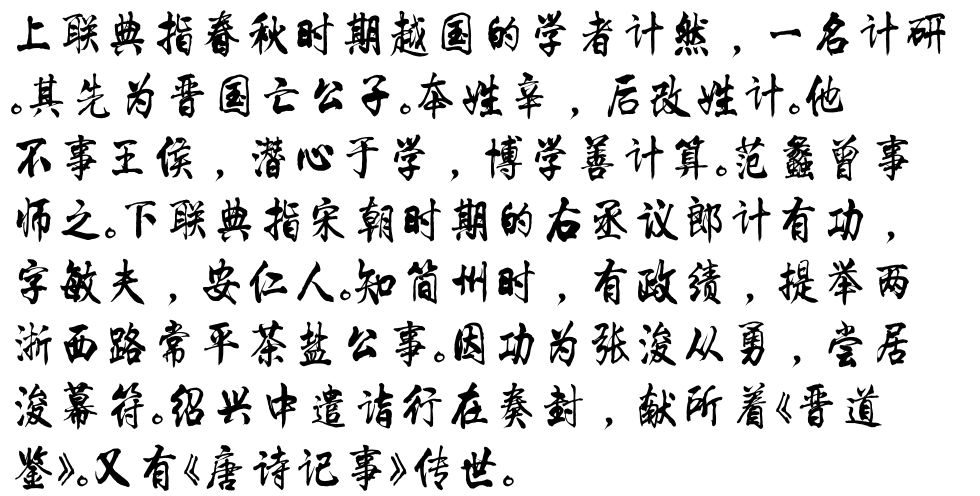 上联典指春秋时期越国的学者计然，一名计研
。其先为晋国亡公子。本姓辛，后改姓计。他
不事王侯，潜心于学，博学善计算。范蠡曾事
师之。下联典指宋朝时期的右丞议郎计有功，
字敏夫，安仁人。知简州时，有政绩，提举两
浙西路常平茶盐公事。因功为张浚从勇，尝居
浚幕符。绍兴中遣诣行在奏封，献所着《晋道
鉴》。又有《唐诗记事》传世。